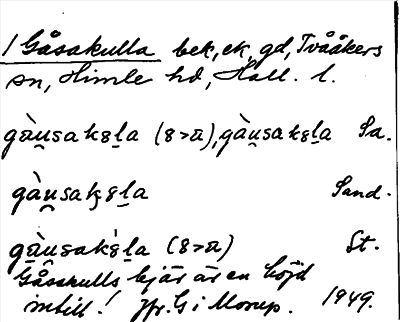 1 Gåsakulla bek, ek, gd, Tvååkers
sn, Himle hd, Hall. l.
gàu̯sakꞩl̠a (ꞩ>a), gàu̯sakꞩl̠a Sa.
gàu̯sakꞩl̠a Sand.
gàu̯sakꞩl̠a (ꞩ>a) St.
Gåsakulls bjär är en höjd
intill! Jfr. G i Morup. 1949.